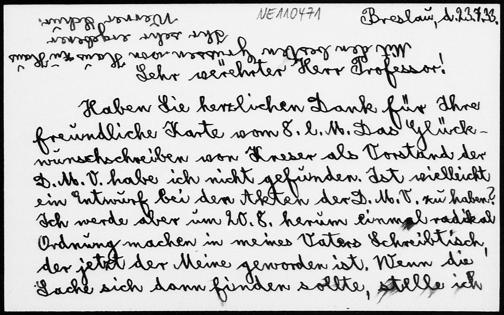 NE110471
Breslau, d. 23.7.33.
Sehr verehrter Herr Professor!
Haben Sie herzlichen Dank für Ihre
freundliche Karte vom 8. l. M. Das Glück-
wunschschreiben von Kneser als Vorstand der
D. M. V. habe ich nicht gefunden. Ist vielleicht
ein Entwurf bei den Akten der D. M. V. zu haben?
Ich werde aber um 20. 8. herum einmal radikal
Ordnung machen in meines Vaters Schreibtisch,
der jetzt der Meine geworden ist. Wenn die
Sache sich dann finden sollte, stelle ich
Mit den besten Grüssen von Haus zu Haus
Ihr sehr ergebener
Werner